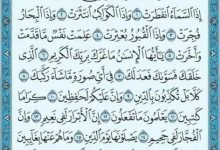 إِذَا ٱلسَّمَآءُ ٱنفَطَرَتْ ١ وَإِذَا ٱلْكَوَاكِبُ ٱنتَثَرَتْ ٢ وَإِذَا ٱلْبِحَارُ
فُجِّرَتْ ٣ وَإِذَا ٱلْقُبُورُ بُعْثِرَتْ ٤ عَلِمَتْ نَفْسٌ مَّا قَدَّمَتْ
وَأَخَّرَتْ ٥ يَٰٓأَيُّهَا ٱلْإِنسَٰنُ مَا غَرَّكَ بِرَبِّكَ ٱلْكَرِيمِ ٦ ٱلَّذِى
خَلَقَكَ فَسَوَّىٰكَ فَعَدَلَكَ ٧ فِىٓ أَىِّ صُورَةٍ مَّا شَآءَ رَكَّبَكَ ٨
كَلَّا بَلْ تُكَذِّبُونَ بِٱلدِّينِ ٩ وَإِنَّ عَلَيْكُمْ لَحَٰفِظِينَ ١٠ كِرَامًا
كَٰتِبِينَ ١١ يَعْلَمُونَ مَا تَفْعَلُونَ ١٢ إِنَّ ٱلْأَبْرَارَ لَفِى نَعِيمٍ ١٣ وَإِنَّ
ٱلْفُجَّارَ لَفِى جَحِيمٍ ١٤ يَصْلَوْنَهَا يَوْمَ ٱلدِّينِ ١٥ وَمَا هُمْ عَنْهَا بِغَآئِبِينَ